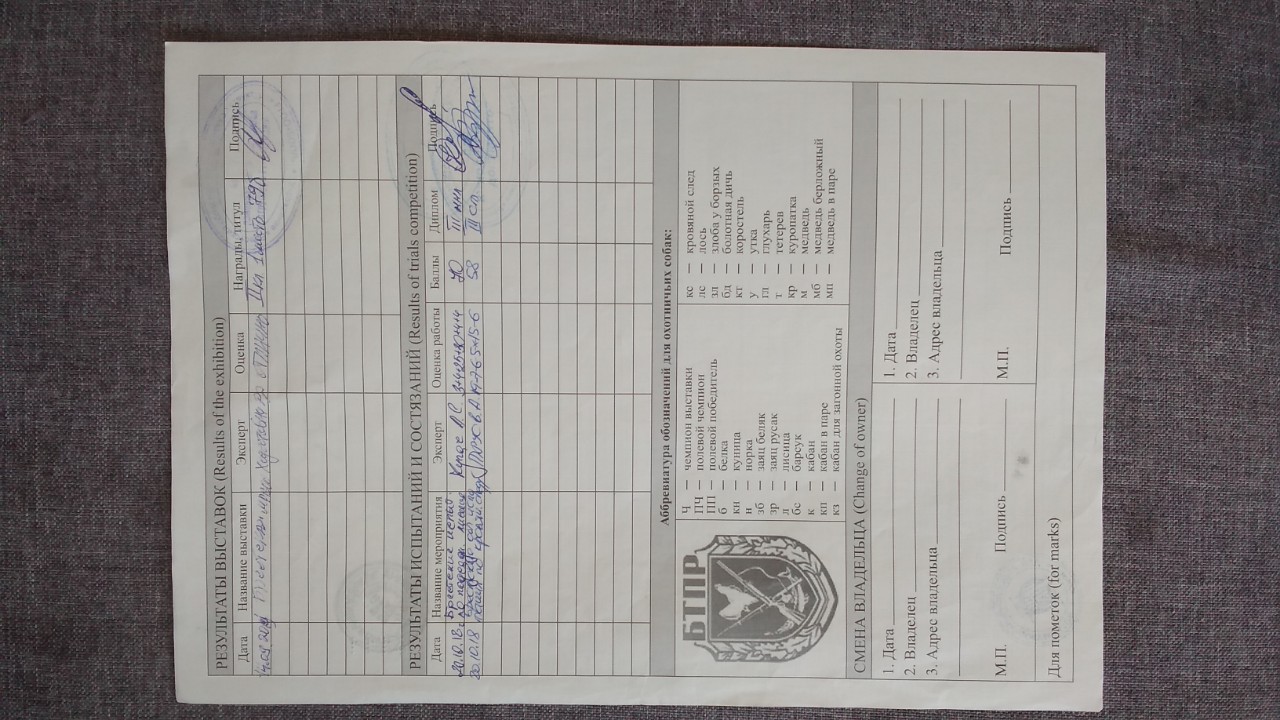 РЕЗУЛЬТАТЫ ВЫСТАВОК (Results of the exhibition)
Дата Название выставки Эксперт Оценка Награды, титул Подпись
РЕЗУЛЬТАТЫ ИСПЫТАНИЙ И СОСТЯЗАНИЙ (Results of trials competition)
Дата Название мероприятия Эксперт Оценка работы Баллы Диплом Подпись
20.10.18 Братские 70 III
20.10.18 58 III
БТПР
Аббревиатура обозначений для охотничьих собак:
Ч — чемпион выставки
ПЧ — полевой чемпион
ПП — полевой победитель
б — белка
кн — куница
н — норка
зб — заяц беляк
зр — заяц русак
л — лисица
бс — барсук
к — кабан
кп — кабан в паре
кз — кабан для загонной охоты
кс — кровяной след
лс — лось
зл — злоба у борзых
бд — болотная дичь
кт — коростель
у — утка
гл — глухарь
т — тетерев
кр — куропатка
м — медведь
мб — медведь берложный
мп — медведь в паре
СМЕНА ВЛАДЕЛЬЦА (Change of owner)
1. Дата
2. Владелец
3. Адрес владельца
М.П. Подпись
1. Дата
2. Владелец
3. Адрес владельца
М.П. Подпись
Для пометок (for marks)